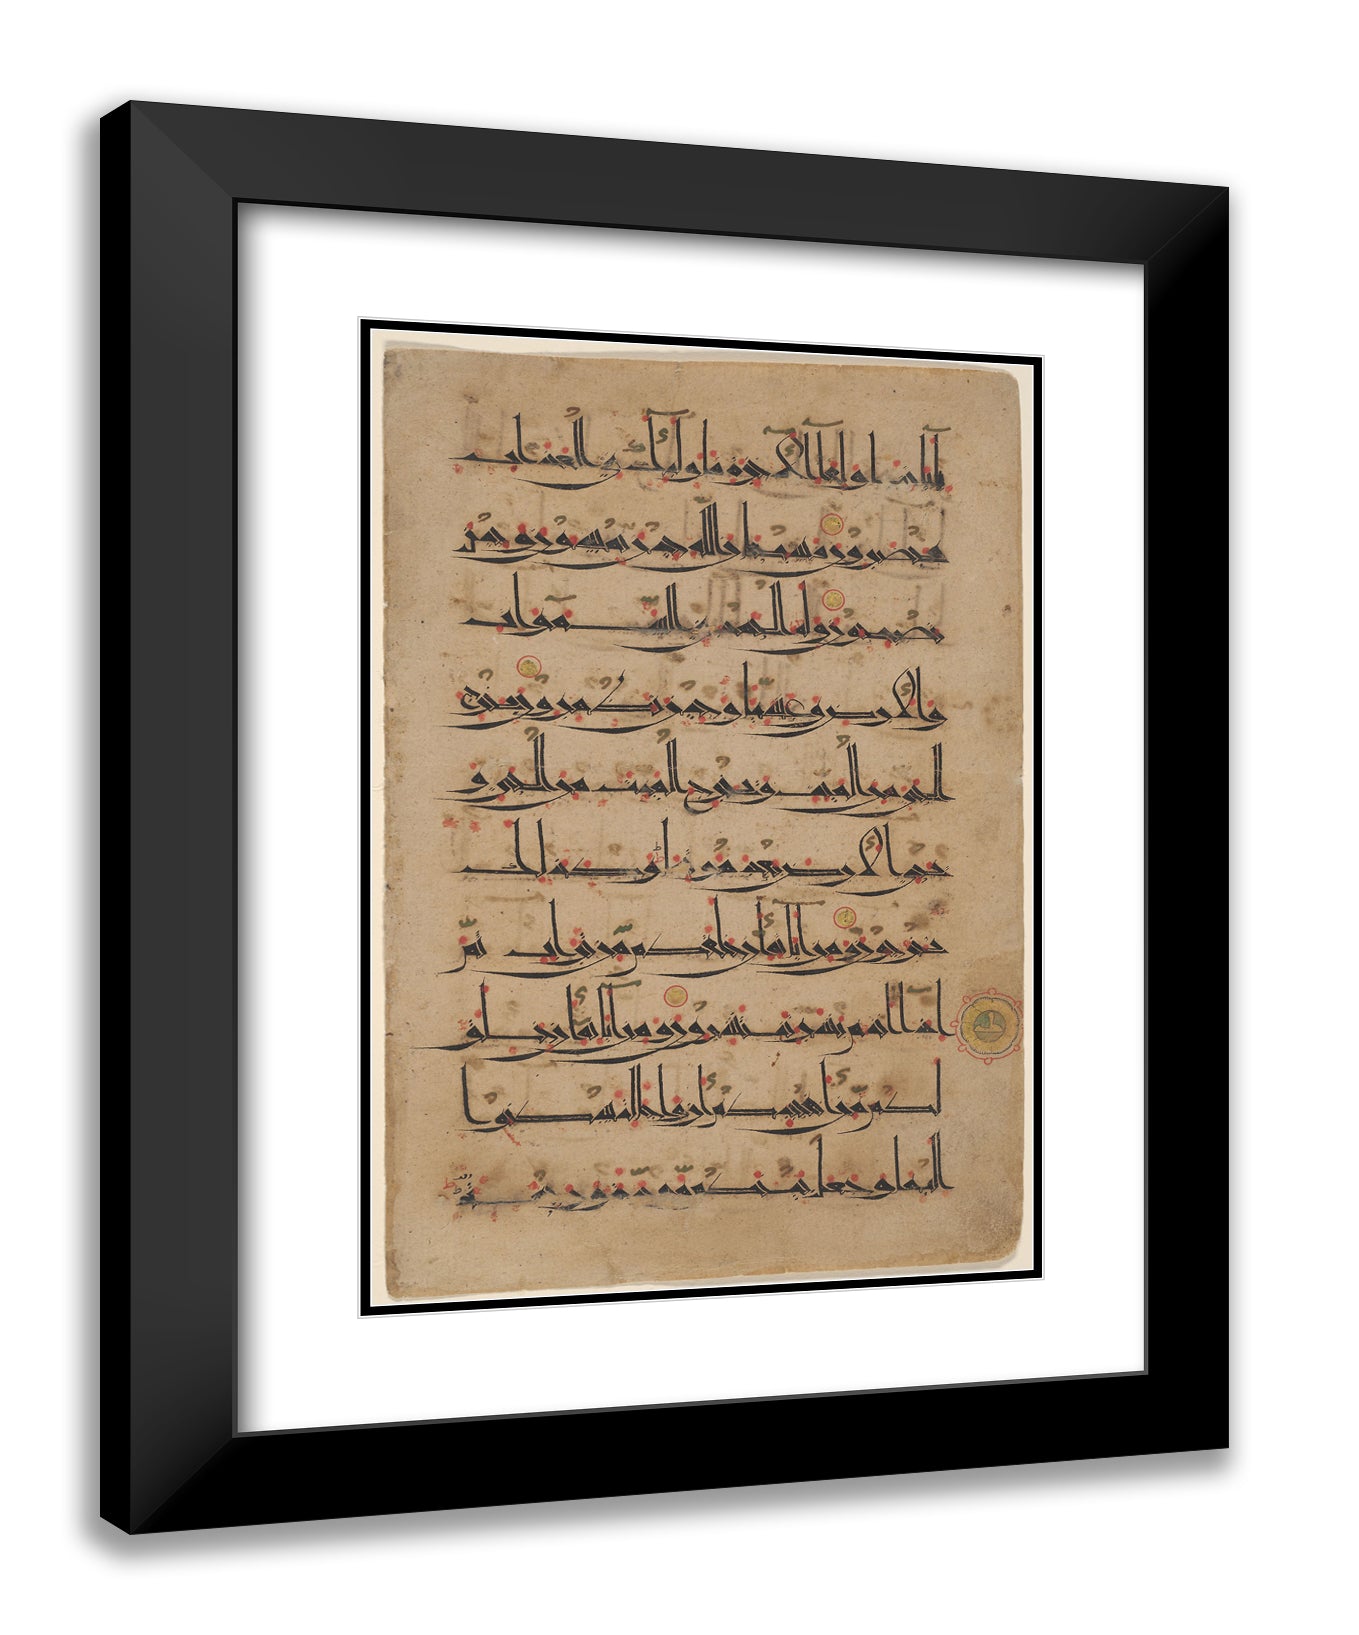 بِآيَاتِنَا وَلِقَاءِ الْآخِرَةِ فَأُولَٰئِكَ فِي الْعَذَابِ
مُحْضَرُونَ فَسُبْحَانَ اللَّهِ حِينَ تُمْسُونَ وَحِينَ
تُصْبِحُونَ وَلَهُ الْحَمْدُ فِي السَّمَوَاتِ
وَالْأَرْضِ وَعَشِيًّا وَحِينَ تُظْهِرُونَ يُخْرِجُ
الْحَيَّ مِنَ الْمَيِّتِ وَيُخْرِجُ الْمَيِّتَ مِنَ الْحَيِّ وَ
يُحْيِي الْأَرْضَ بَعْدَ مَوْتِهَا وَكَذَٰلِكَ
تُخْرَجُونَ وَمِنْ آيَاتِهِ أَنْ خَلَقَكُمْ مِنْ تُرَابٍ ثُمَّ
إِذَا أَنْتُمْ بَشَرٌ تَنْتَشِرُونَ وَمِنْ آيَاتِهِ أَنْ خَلَقَ
لَكُمْ مِنْ أَنْفُسِكُمْ أَزْوَاجًا لِتَسْكُنُوا
إِلَيْهَا وَجَعَلَ بَيْنَكُمْ مَوَدَّةً وَرَحْمَةً